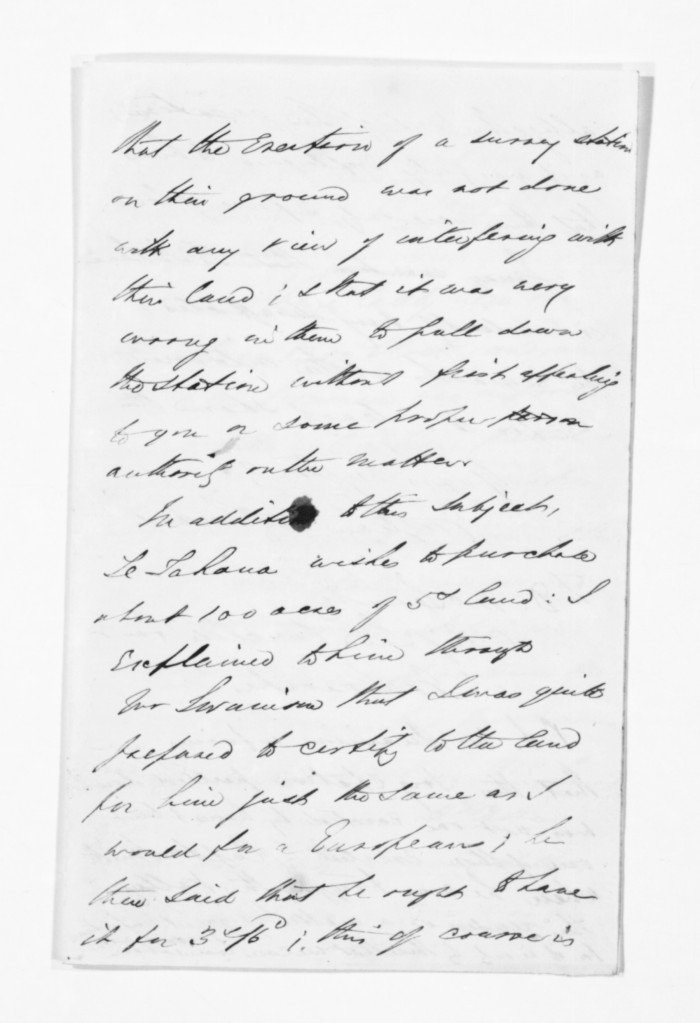 that the Erection of a survey station
on their ground was not done
with any view of interfering with
their land ; & that it was very
wrong in them to pull down
the station without first appealing
to you or some proper person
authority on the matter.
In addition to this subject,
Te Tahana wishes to purchase
about 100 acres of 5s/ land : I
explained to him through
Mr Swainson that I was quite
prepared to certify to the land
for him just the same as I
would for a European ; he
then said that he ought to have
it for 3s/6d ; this of course is